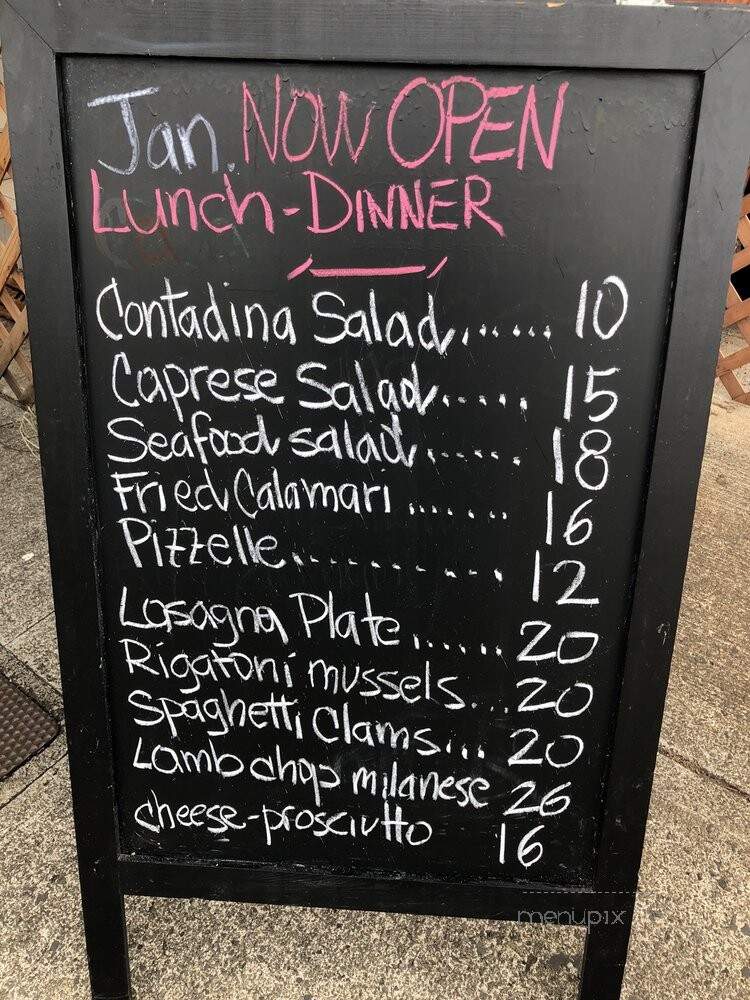 Jan. NOW OPEN
Lunch-DINNER
Contadina Salad...... 10
Caprese Salad..... 15
Seafood salad...... 18
Fried Calamari ....... 16
Pizzelle.......... 12
Lasagna Plate...... 20
Rigatoni mussels... 20
Spaghetti Clams... 20
Lamb chop milanese 26
cheese-prosciutto 16
menupix